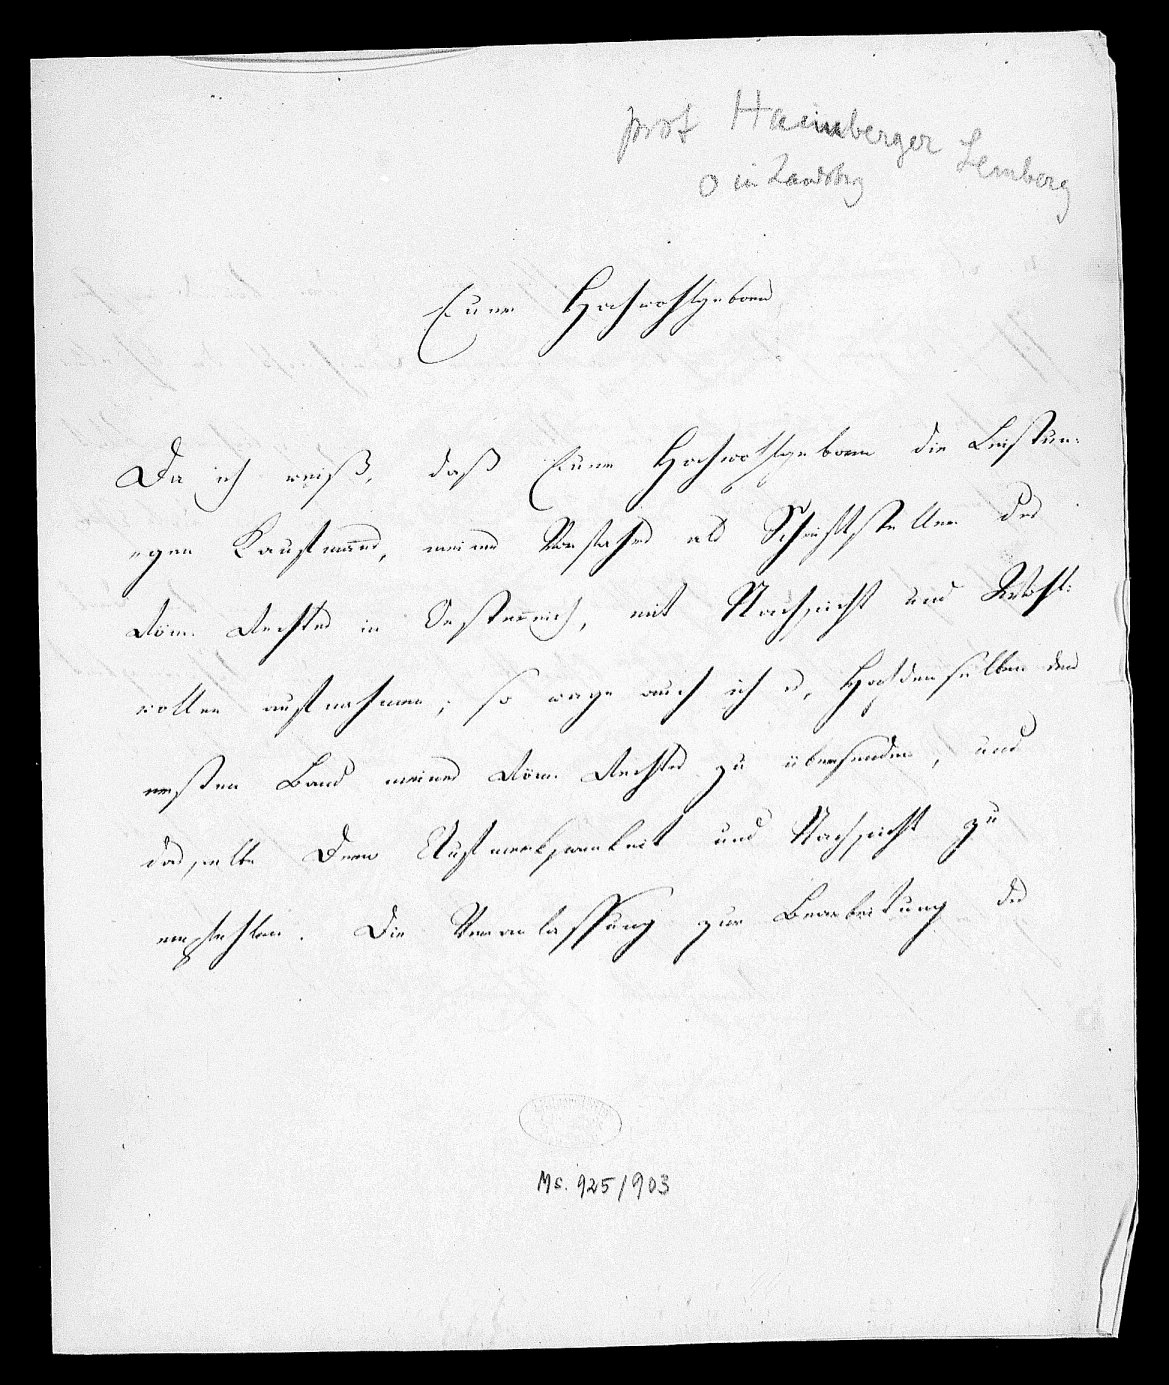 prof Haimberger Lemberg
0 in Landsbrg
Euer Hochwohlgeboren
Da ich weiß, daß Euer Hochwohlgeboren die Leistun-
gen Kaufmanns, meines Vorfahrs als Schriftsteller des
Röm. Rechtes in Oesterreich, mit Nachsicht und Wohl-
wollen aufnahmen; so wage auch ich es, Hochdenselben den
ersten Band meines Röm. Rechtes zu übersenden, und
dasselbe Dero Aufmerksamkeit und Nachsicht zu
empfehlen. Die Veranlassung zur Bearbeitung des
Ms. 925/903